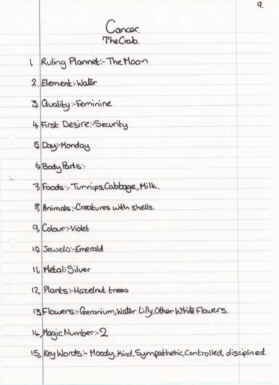 9
Cancer
The Crab.
1, Ruling Plannet:- The Moon
2, Element:- Water
3, Quality:- Feminine
4, First Desire:- Security
5, Day:- Monday
6, Body Parts:-
7, Foods:- Turnips, Cabbage, Milk.
8, Animals:- Creatures with shells.
9, Colour:- Violet
10, Jewels:- Emerald
11, Metal: Silver
12, Plants:- Hazelnut trees
13, Flowers:- Geranium, Water Lily, Other White Flowers.
14, Magic Number:- 2
15, Key Words:- Moody, Kind, Sympathetic, Controlled, disciplined